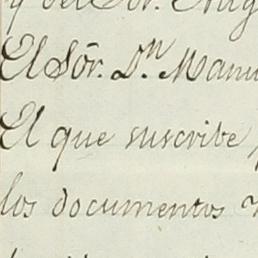 y del Sor. Aug
El Sõr. D.n Manu
El que suscribe,
los documentos